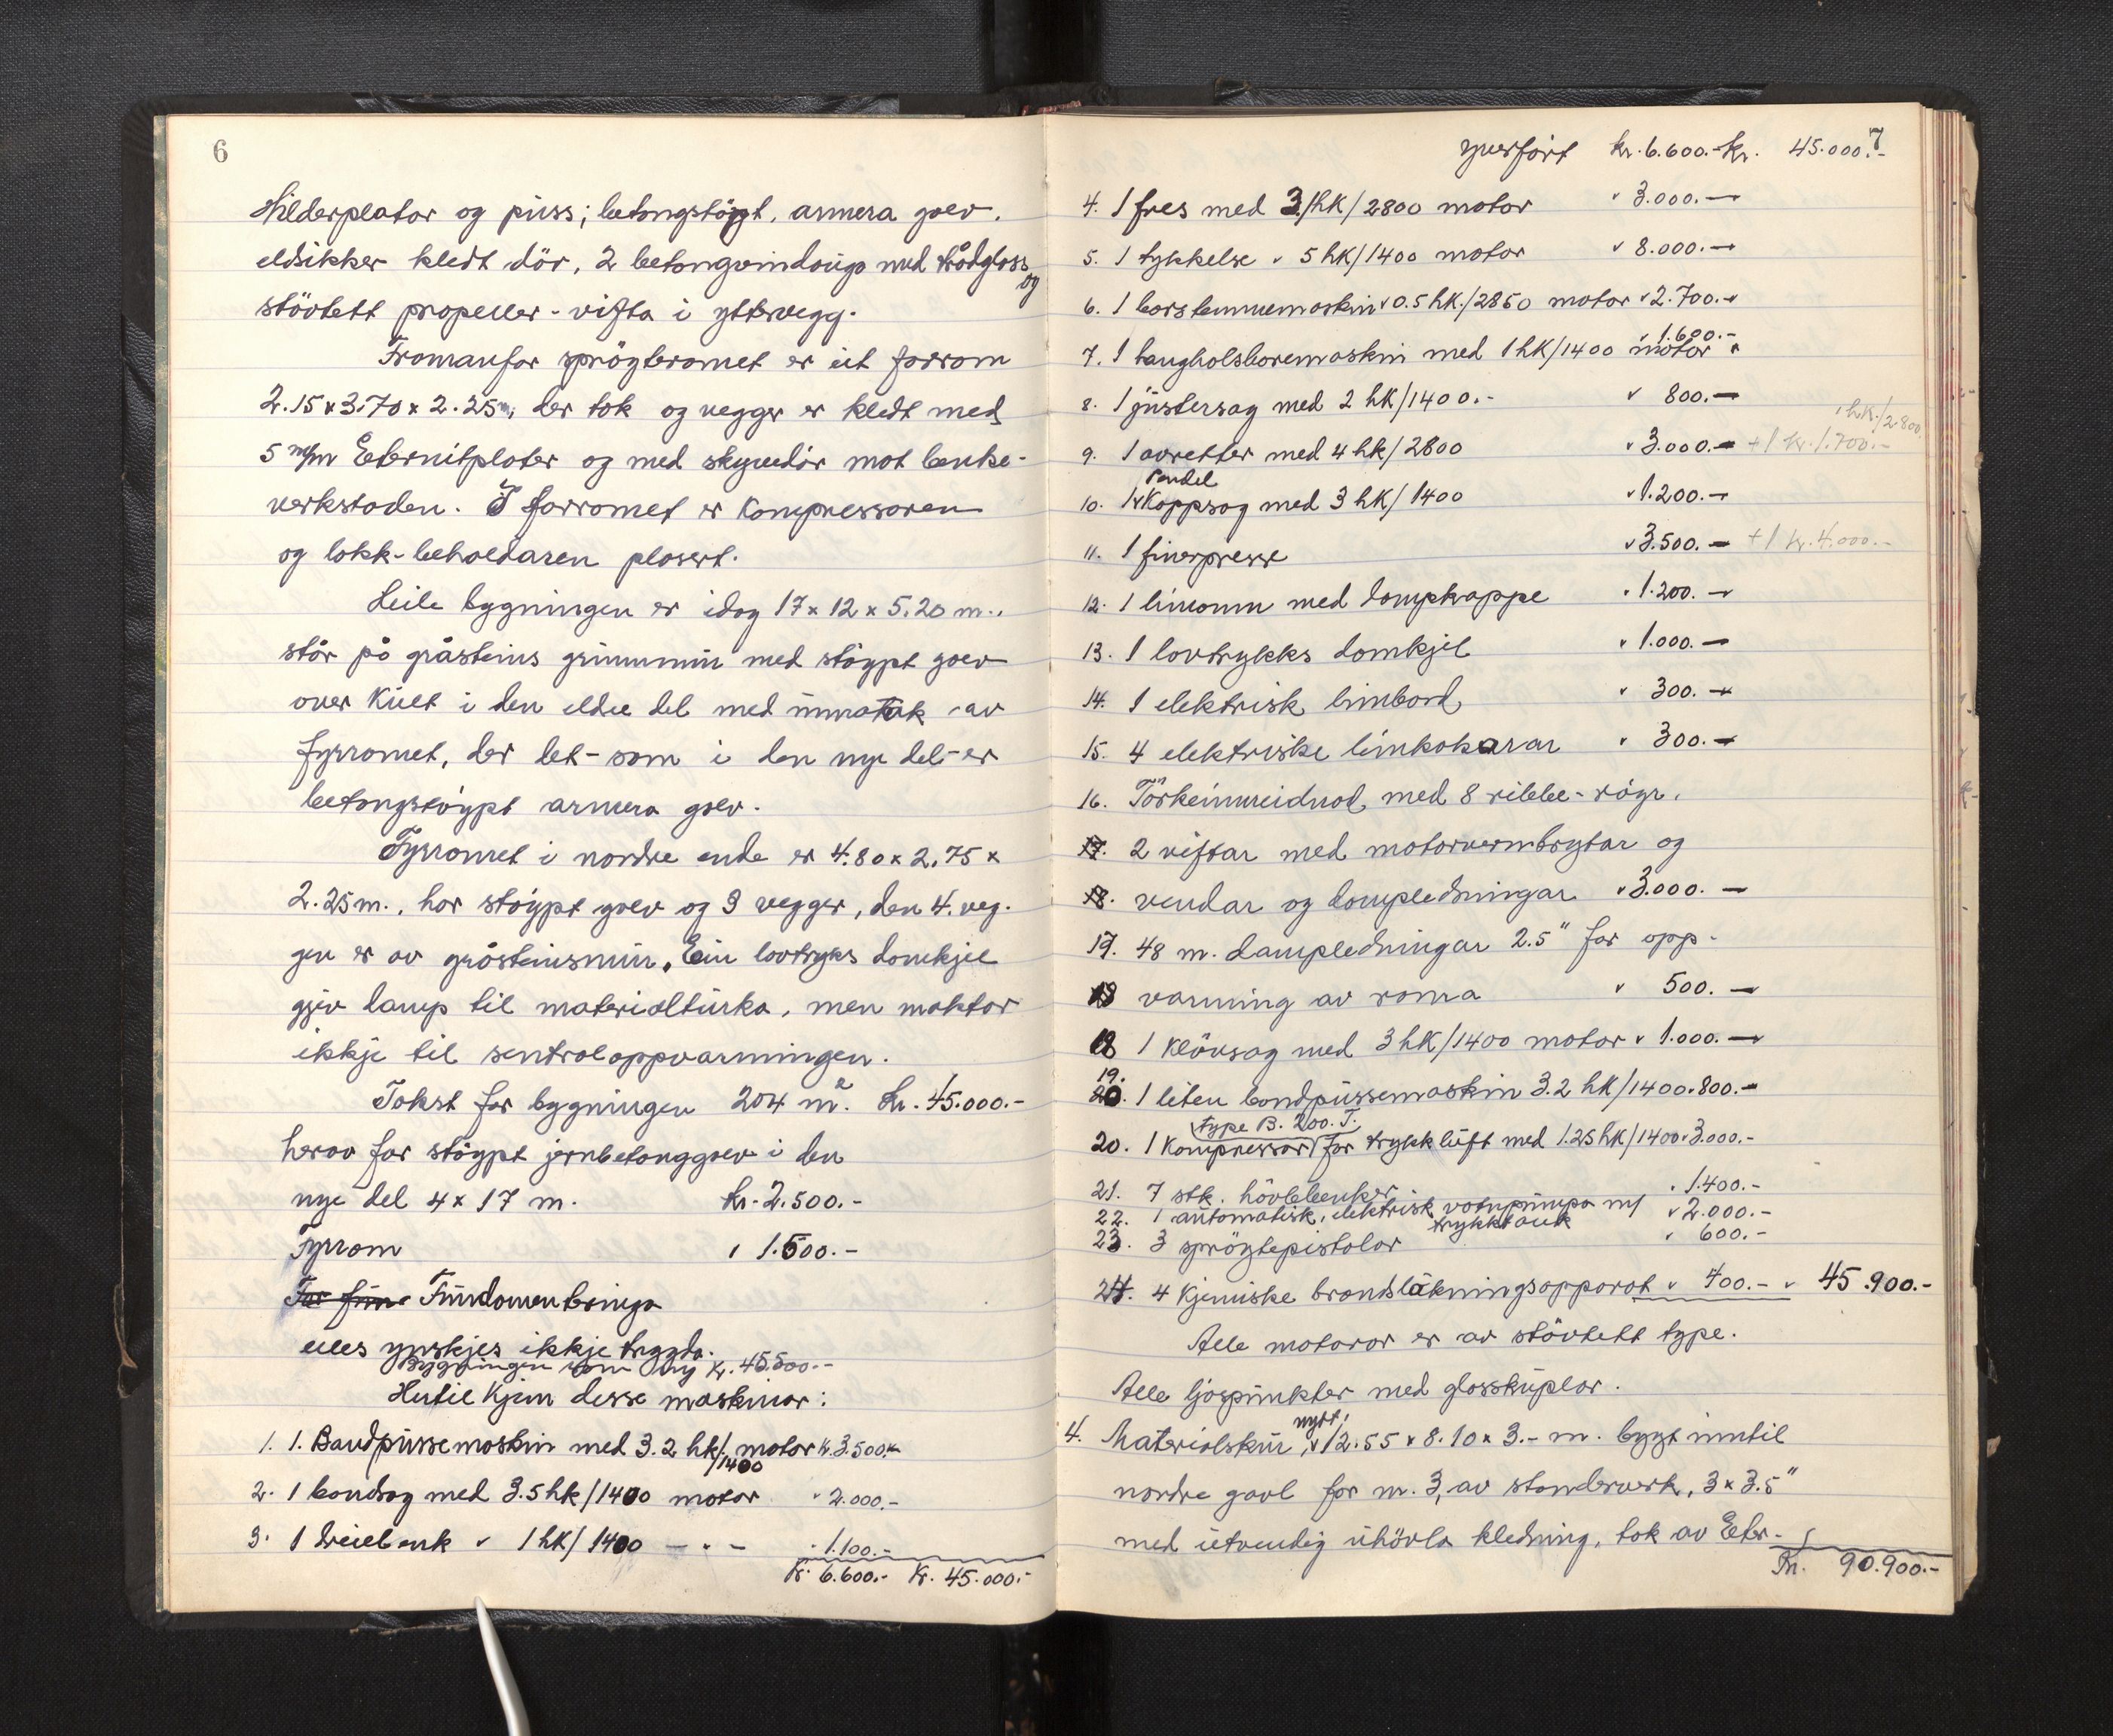 6
Hilderplator og puss; betongstøypt, armera golv,
eldsikker kledt dör, 2 betongvindaugo med trådglass og
stövtett propeller-vifta i yttervegg.
Framanfor spröyteromet er eit forrom
2.15 x 3.70 x 2.25 m, der tak og vegger er kledt med
5 m/m Eternitplater og med skyvedör mot benke-
verkstaden. I forromet er Kompressoren
og lakk-behaldaren plasert.
Heile bygningen er idag 17 x 12 x 5.20 m.,
står på gråsteins grunnmur med stöypt golv
over Kult i den eldre del med unnatak av
fyrromet, der det - som i den nye del - er
betongstöypt armera golv.
Fyrromet i nordre ende er 4.80 x 2.75 x
2.25 m., har stöypt golv og 3 vegger, den 4. veg-
gen er av gråsteinsmur. Ein lavtryks damkjel
gjev damp til materialturka, men maktar
ikkje til sentraloppvarmingen.
Takst for bygningen 204 m². Kr. 45.000.-
herav for stöypt jernbetonggolv i den
nye del 4 x 17 m. Kr. 2.500.-
Fyrrom " 1.500.-
For fun- Fundamenteringa
elles ynskjes ikkje trygda.
Bygningen som ny Kr. 45.500.-
Hertil Kjem desse maskinar:
1. 1. Bandpussemaskin med 3.2 hk/1400 motor Kr. 3.500.-
2. 1 bandsag med 3.5 hk/1400 motor " 2.000.-
3. 1 dreiebenk " 1 hk/1400 - " - " 1.100.-
Kr. 6.600.- Kr. 45.000.-
7
yverfört Kr. 6.600.- Kr. 45.000.-
4. 1 fres med 3 hk/2800 motor " 3.000.-
5. 1 tykkelse " 5 hk/1400 motor " 8.000.-
6. 1 borstemmemaskin " 0.5 hk./2850 motor " 2.700.-
7. 1 langholsboremaskin med 1 hK/1400 motor " 1.600.-
8. 1 justersag med 2 hk/1400.- " 800.-
9. 1 avretter med 4 hk/2800 " 3.000.- +1 kr. 1.700.- 1 hk./2800
10. 1 Pendel Kappsag med 3 hk/1400 " 1.200.-
11. 1 finerpresse " 3.500.- +1 kr. 4.000.-
12. 1 limomn med dampkappe " 1.200.-
13. 1 lavtrykks damkjel " 1.000.-
14. 1 elektrisk limbord " 300.-
15. 4 elektriske limkokarar " 300.-
16. Törkeinnreidnad med 8 ribbe-röyr,
17. 2 viftar med motorvernbrytar og
18. vendar og dampledningar " 3.000.-
17. 48 m. dampledningar 2.5" for opp-
varming av roma " 500.-
18 1 Klövsag med 3 hK/1400 motor " 1.000.-
19. 1 liten bandpussemaskin 3.2 hk/1400 " 800.-
type B. 200. T.
20. 1 Kompressor for trykkluft med 1.25 hk/1400 " 3.000.-
21. 7 stk. hövlebenker " 1.400.-
22. 1 automatisk, elektrisk vatnpumpa m/ trykktank " 2.000.-
23. 3 spröytepistolar " 600.-
24. 4 Kjemiske brandsläkningsapparat " 700.- " 45.900.-
Alle motorar er av stövtett type.
Alle ljospunkter med glasskuplar.
4. Materialskur, nytt, 12.55 x 8.10 x 3.- m. bygt inntil
nordre gavl for nr. 3, av standerverk, 3 x 3.5"
med utvendig uhövla kledning, tak av Eter-
Kr. 90.900.-